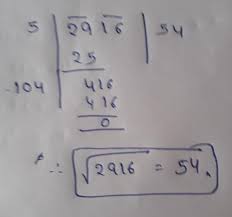 5 | 2916 | 54
25
104 | 416
416
0
∴ √2916 = 54.